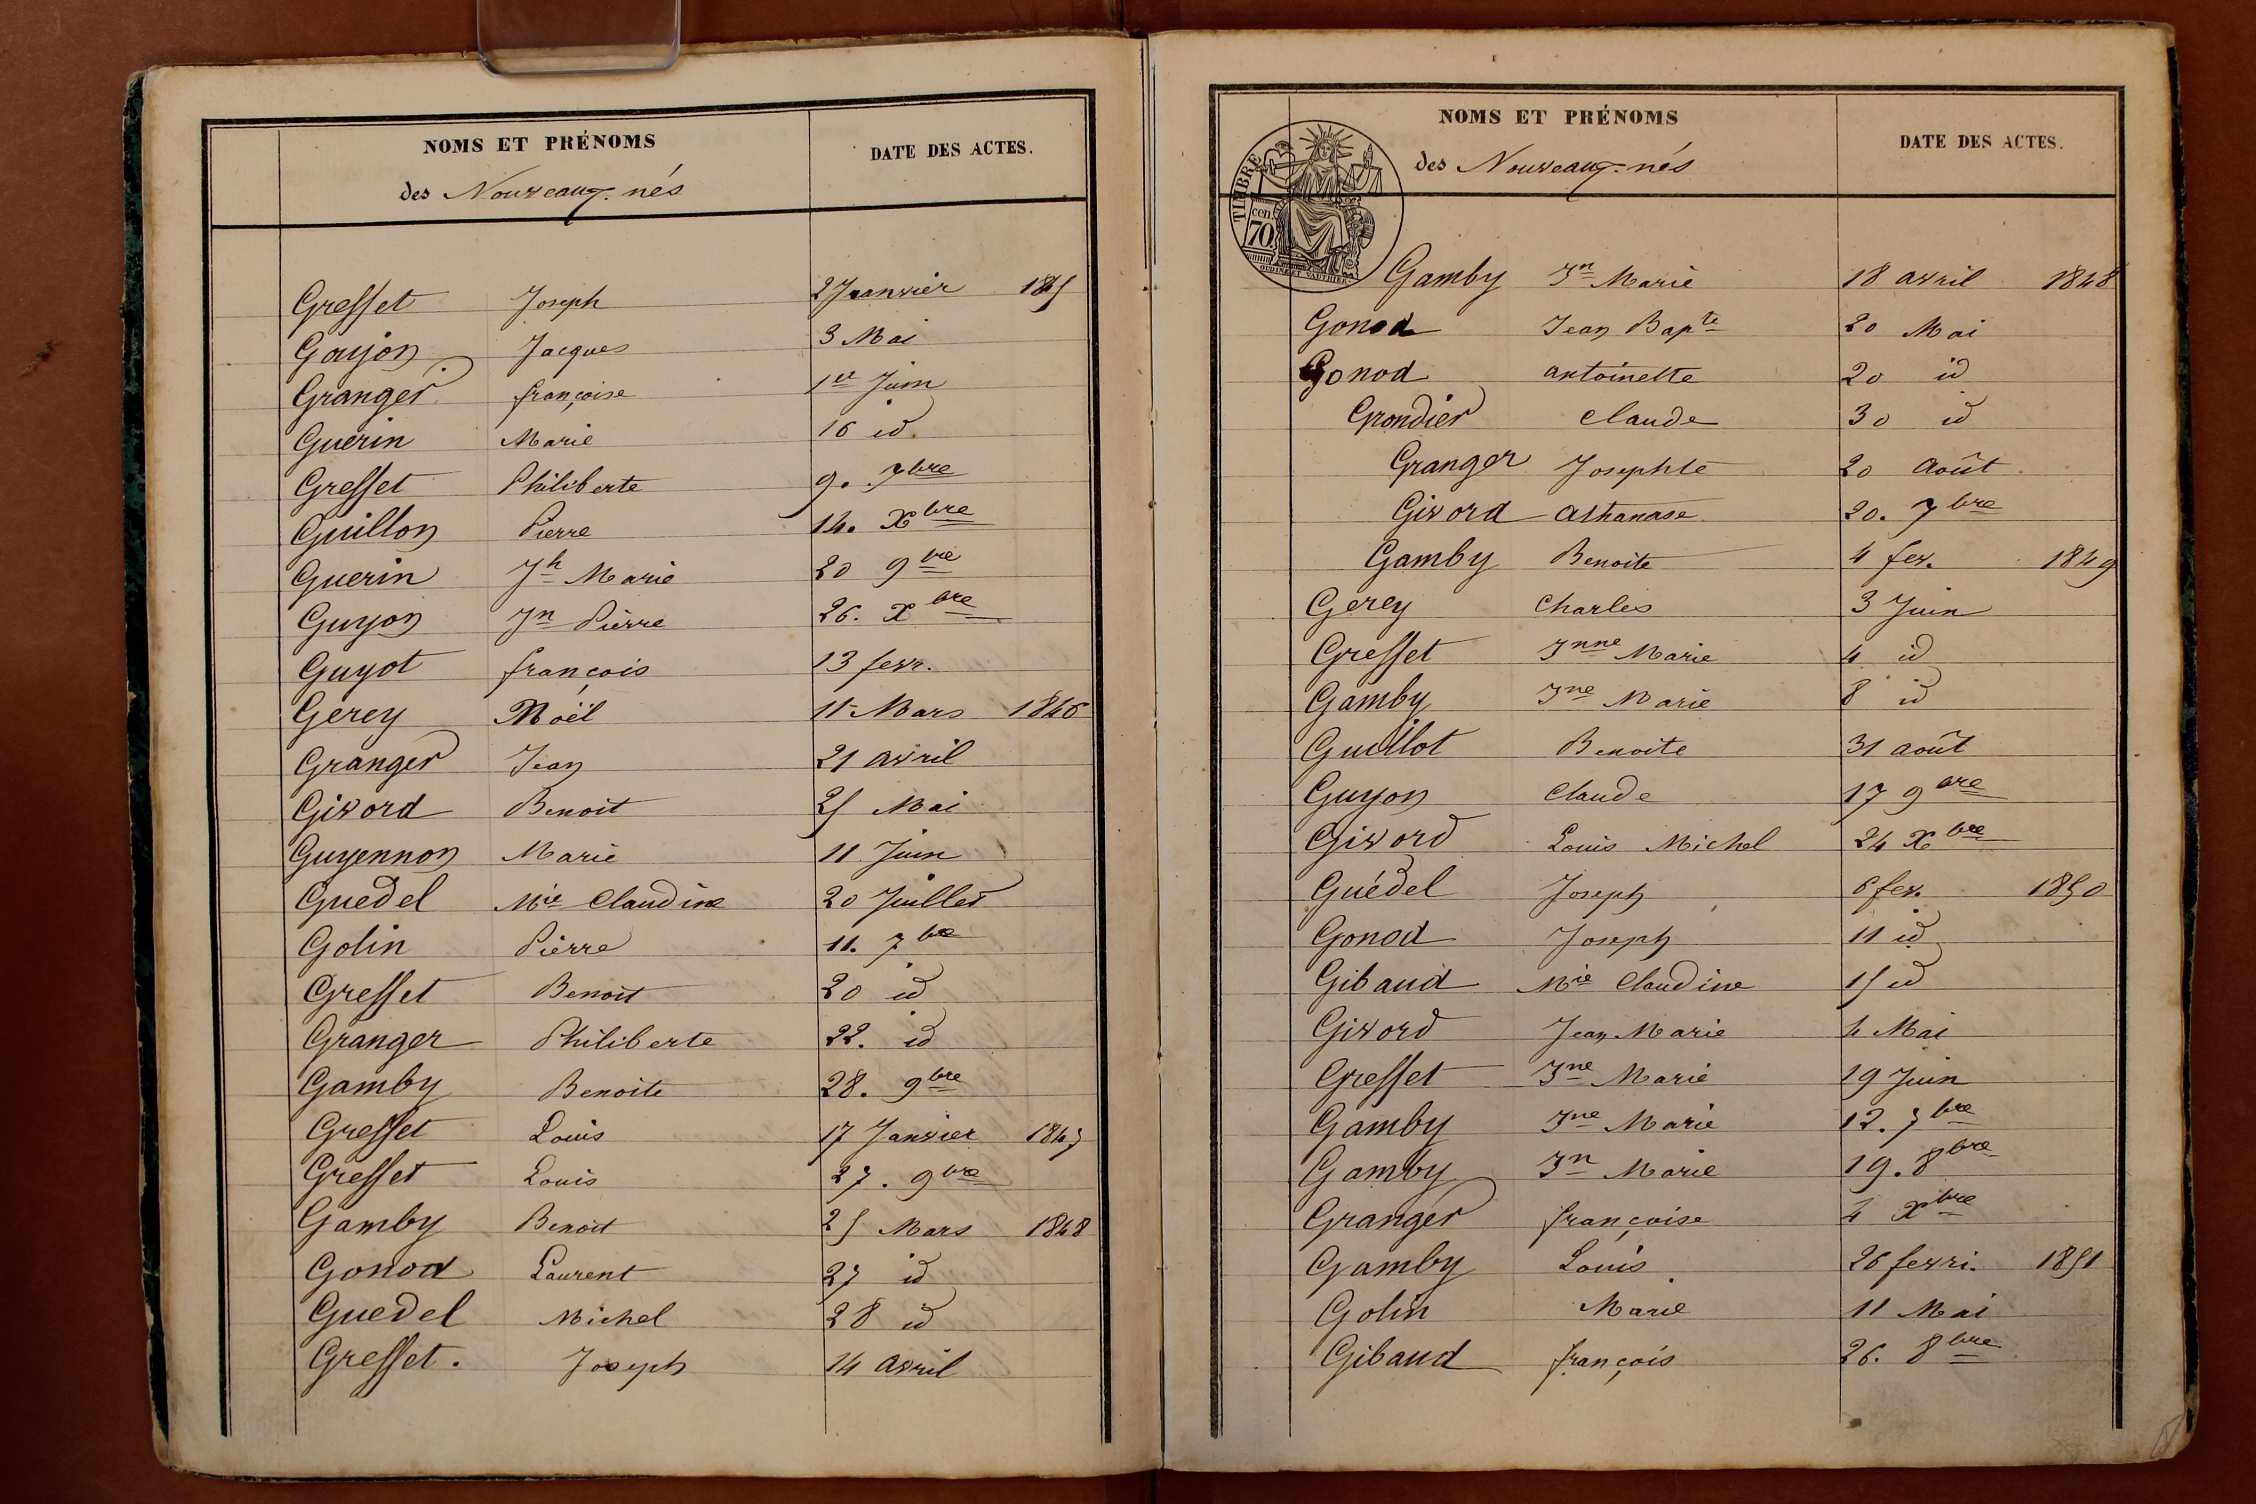 NOMS ET PRÉNOMS
des Nouveaux-nés
DATE DES ACTES.
Gresset Joseph 27 Janvier 1845
Goyon Jacques 3 Mai
Granger françoise 1er Juin
Guerin Marie 16 id
Gresset Philiberte 9. 7bre
Guillon Pierre 14. Xbre
Guerin Jh Marie 20 9bre
Guyon Jn Pierre 26. Xbre
Guyot françois 13 fevr.
Gerey Noël 11 Mars 1846
Granger Jean 21 avril
Givord Benoit 25 Mai
Guyennon Marie 11 Juin
Guedel Mie Claudine 20 Juillet
Golin Pierre 11. 7bre
Gresset Benoit 20 id
Granger Philiberte 22. id
Gamby Benoite 28. 9bre
Gresset Louis 17 Janvier 1847
Gresset Louis 27. 9bre
Gamby Benoit 25 Mars 1848
Gonod Laurent 27 id
Guedel Michel 28 id
Gresset. Joseph 14 avril
NOMS ET PRÉNOMS
des Nouveaux-nés
DATE DES ACTES.
TIMBRE
70 cen.
OUDINÉ ET GAUTHIER
Gamby Jn Marie 18 avril 1848
Gonod Jean Bapte 20 Mai
Gonod antoinette 20 id
Grondier Claude 30 id
Granger Josephte 20 août
Givord Athanase 20. 7bre
Gamby Benoite 4 fev. 1849
Gerey Charles 3 Juin
Gresset Jnne Marie 4 id
Gamby Jne Marie 8 id
Guillot Benoite 31 août
Guyon Claude 17 9bre
Givord Louis Michel 24 Xbre
Guédel Joseph 6 fev. 1850
Gonod Joseph 11 id
Gibaud Mie Claudine 15 id
Givord Jean Marie 4 Mai
Gresset Jne Marie 19 Juin
Gamby Jne Marie 12. 7bre
Gamby Jn Marie 19. 8bre
Granger françoise 4 Xbre
Gamby Louis 26 fevri. 1851
Golin Marie 11 Mai
Gibaud françois 26. 8bre